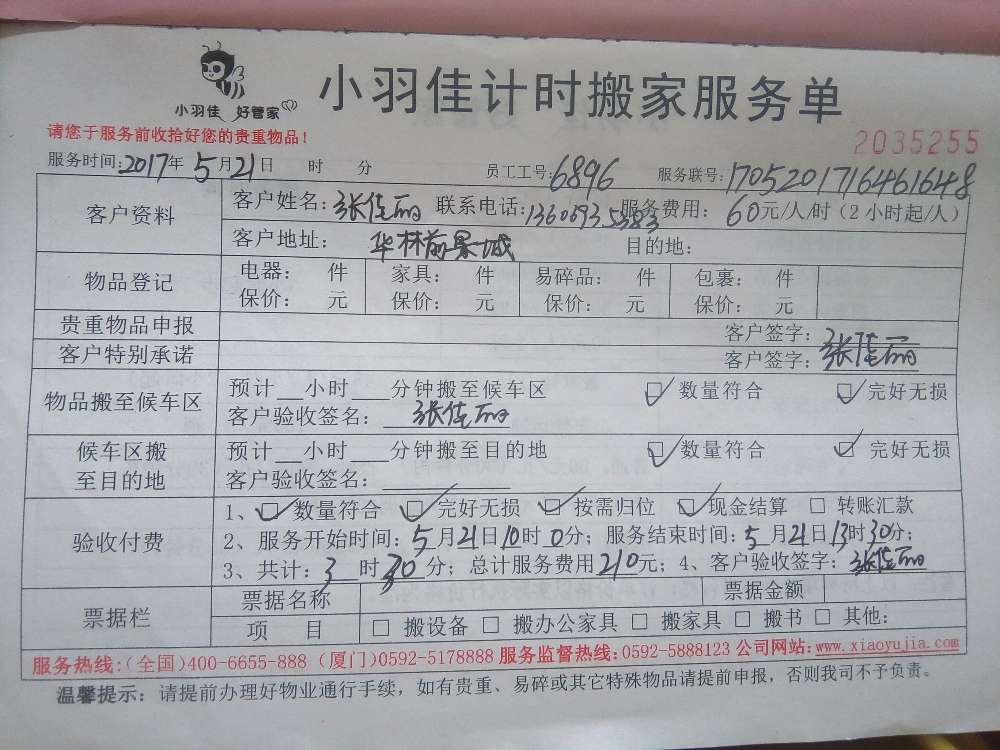 小羽佳 好管家
小羽佳计时搬家服务单
请您于服务前收拾好您的贵重物品！
2035255
服务时间：2017年5月21日 时 分 员工工号：6896 服务联号：1705201716461648
客户资料 客户姓名：张佳丽 联系电话：13606935383 服务费用：60元/人/时（2小时起/人）
客户地址：华林前景城 目的地：
物品登记 电器： 件 家具： 件 易碎品： 件 包裹： 件
保价： 元 保价： 元 保价： 元 保价： 元
贵重物品申报 客户签字：张佳丽
客户特别承诺 客户签字：
物品搬至候车区 预计__小时___分钟搬至候车区 ☑数量符合 ☑完好无损
客户验收签名：张佳丽
候车区搬至目的地 预计__小时___分钟搬至目的地 ☑数量符合 ☑完好无损
客户验收签名：
验收付费 1、☑数量符合 ☑完好无损 ☑按需归位 ☑现金结算 □转账汇款
2、服务开始时间：5月21日10时0分；服务结束时间：5月21日13时30分；
3、共计：3时30分；总计服务费用210元；4、客户验收签字：张佳丽
票据栏 票据名称 票据金额
项 目 □搬设备 □搬办公家具 □搬家具 □搬书 □其他：
服务热线：（全国）400-6655-888（厦门）0592-5178888 服务监督热线：0592-5888123 公司网站：www.xiaoyujia.com
温馨提示：请提前办理好物业通行手续，如有贵重、易碎或其它特殊物品请提前申报，否则我司不予负责。